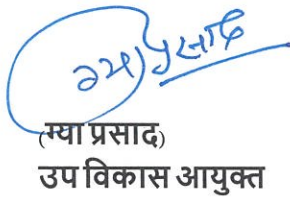 गया प्रसाद
(ग्या प्रसाद)
उप विकास आयुक्त